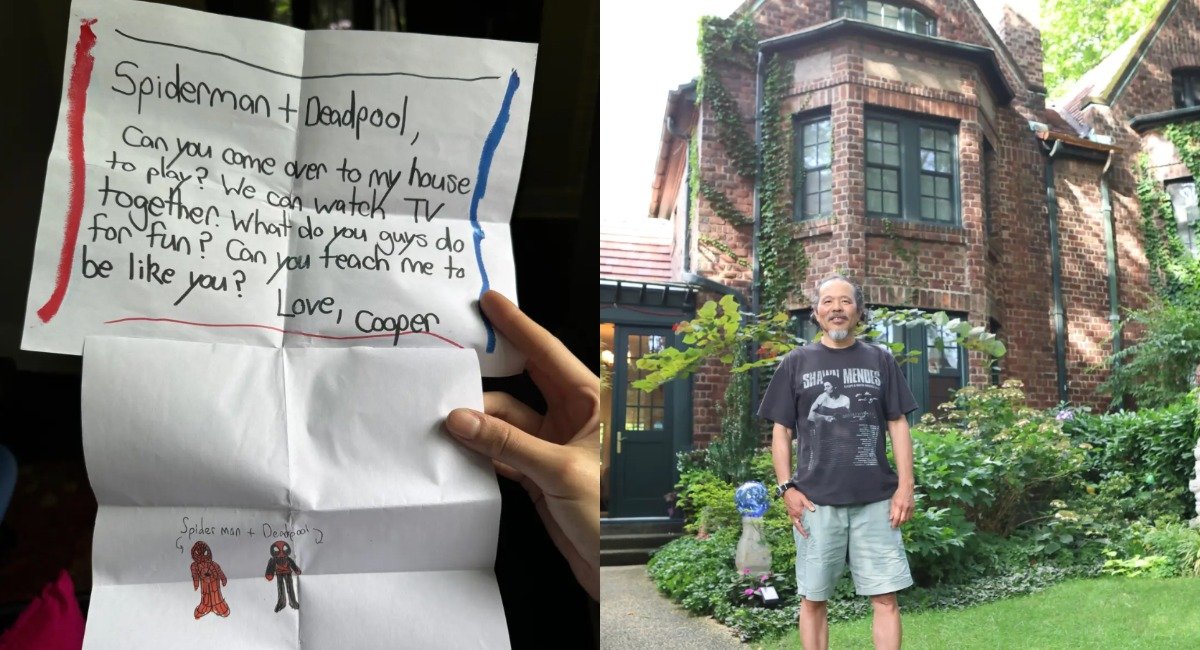 Spiderman + Deadpool,
Can you come over to my house
to play? We can watch TV
together. What do you guys do
for fun? Can you teach me to
be like you?
Love, Cooper
Spider man + Deadpool
SHAWN MENDES